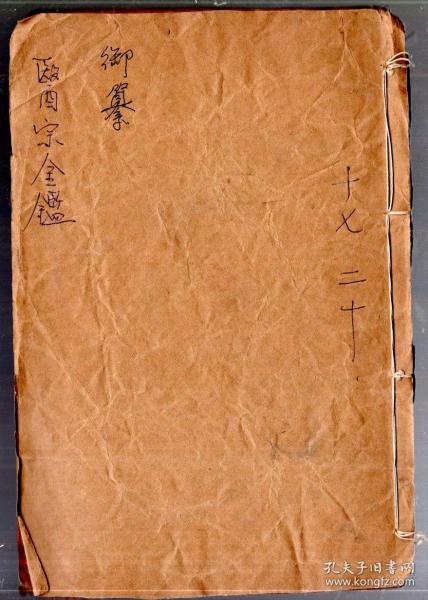 十七 二十
御纂
醫宗金鑑
孔夫子旧书网
www.kongfz.com